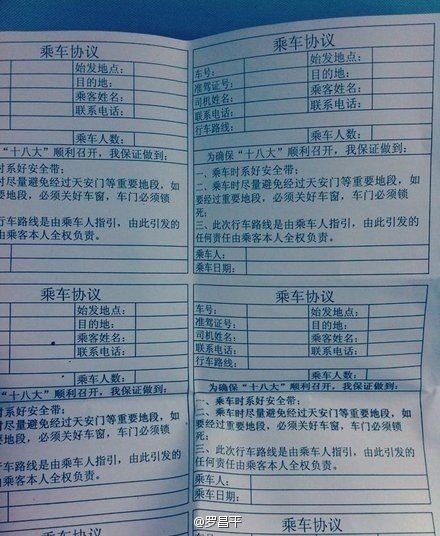 乘车协议
始发地点：
目的地：
乘客姓名：
联系电话：
乘车人数：
“十八大”顺利召开，我保证做到：
时系好安全带；
时尽量避免经过天安门等重要地段，如
要地段，必须关好车窗，车门必须锁
行车路线是由乘车人指引，由此引发的
由乘客本人全权负责。
乘车协议
车号： 始发地点：
准驾证号： 目的地：
司机姓名： 乘客姓名：
联系电话： 联系电话：
行车路线：
乘车人数：
为确保“十八大”顺利召开，我保证做到：
一、乘车时系好安全带；
二、乘车时尽量避免经过天安门等重要地段，如
要经过重要地段，必须关好车窗，车门必须锁
死；
三、此次行车路线是由乘车人指引，由此引发的
任何责任由乘客本人全权负责。
乘车人：
乘车日期：
乘车协议
始发地点：
目的地：
乘客姓名：
联系电话：
乘车人数：
“十八大”顺利召开，我保证做到：
时系好安全带；
时尽量避免经过天安门等重要地段，如
要地段，必须关好车窗，车门必须锁
行车路线是由乘车人指引，由此引发的
由乘客本人全权负责。
乘车协议
车号： 始发地点：
准驾证号： 目的地：
司机姓名： 乘客姓名：
联系电话： 联系电话：
行车路线：
乘车人数：
为确保“十八大”顺利召开，我保证做到：
一、乘车时系好安全带；
二、乘车时尽量避免经过天安门等重要地段，如
要经过重要地段，必须关好车窗，车门必须锁
死；
三、此次行车路线是由乘车人指引，由此引发的
任何责任由乘客本人全权负责。
乘车人：
乘车日期：
乘车协议
@罗昌平